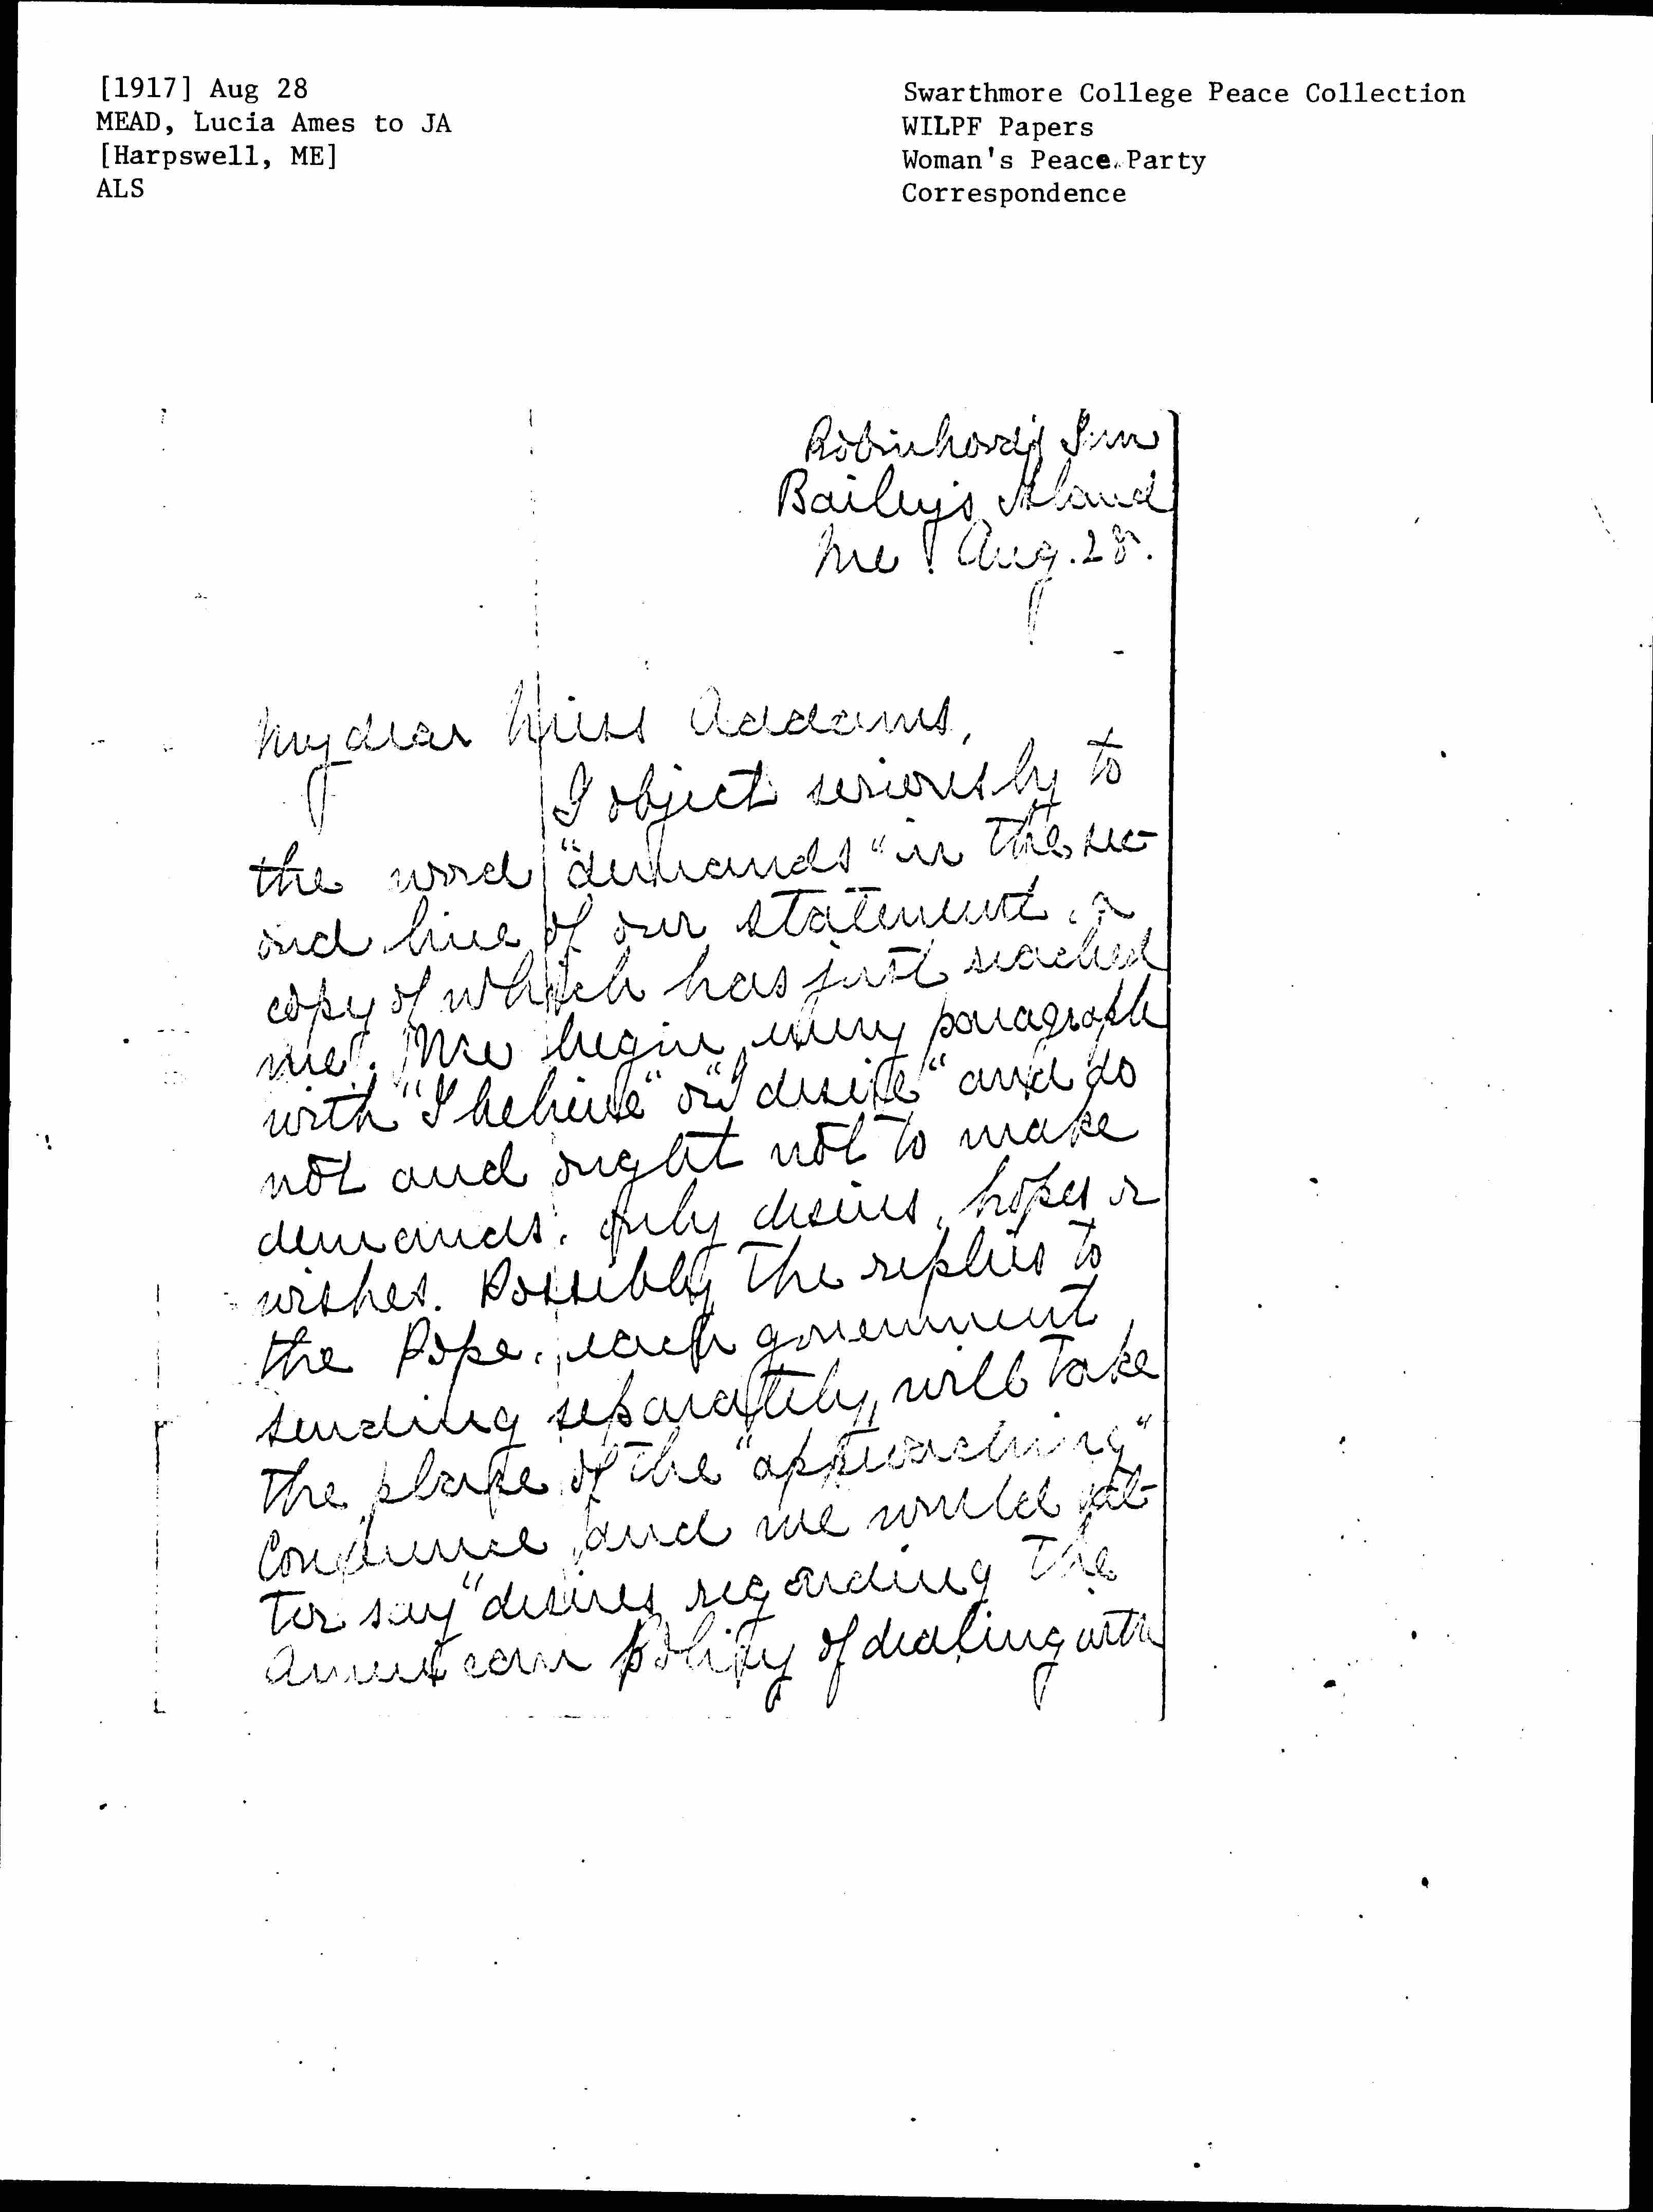 [1917] Aug 28
MEAD, Lucia Ames to JA
[Harpswell, ME]
ALS
Swarthmore College Peace Collection
WILPF Papers
Woman's Peace Party
Correspondence
Robinhood Inn
Bailey's Island
Me. Aug. 28.
My dear Miss Addams,
I object seriously to
the word "demands" in the sec-
ond line of our statement, a
copy of which has just reached
me. We begin every paragraph
with "I believe" or "I desire" and do
not and ought not to make
demands. only desires, hopes or
wishes. Possibly the replies to
the Pope, each government
sending separately, will take
the place of the "approaching"
Conference and we would bet-
ter say "desires regarding the
American policy of dealing with